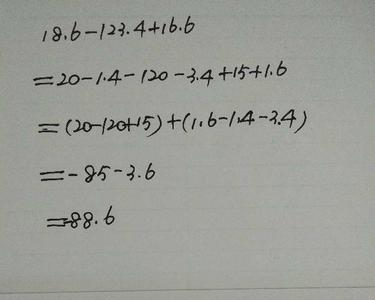 18.6-123.4+16.6
=20-1.4-120-3.4+15+1.6
=(20-120+15)+(1.6-1.4-3.4)
=-85-3.6
=-88.6